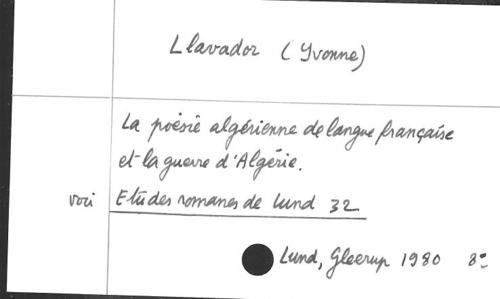 Llavador (Yvonne)
La poésie algérienne de langue française
et la guerre d'Algérie.
voir Etudes romanes de Lund 32
Lund, Gleerup 1980 8°